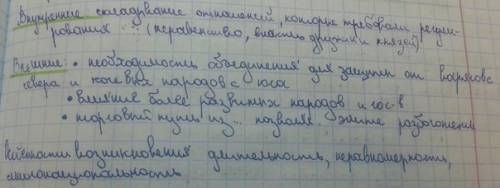 Внутренние складывание отношений, которые требовали регули-
рования (неравенство, власть дружин и князей)
Внешние: • необходимость объединения для защиты от варягов с
севера и кочевых народов с юга
• влияние более развитых народов и гос-в
• торговый путь из ... позволял элите разбогатеть
возникновения длительность, неравномерность,
многонациональность